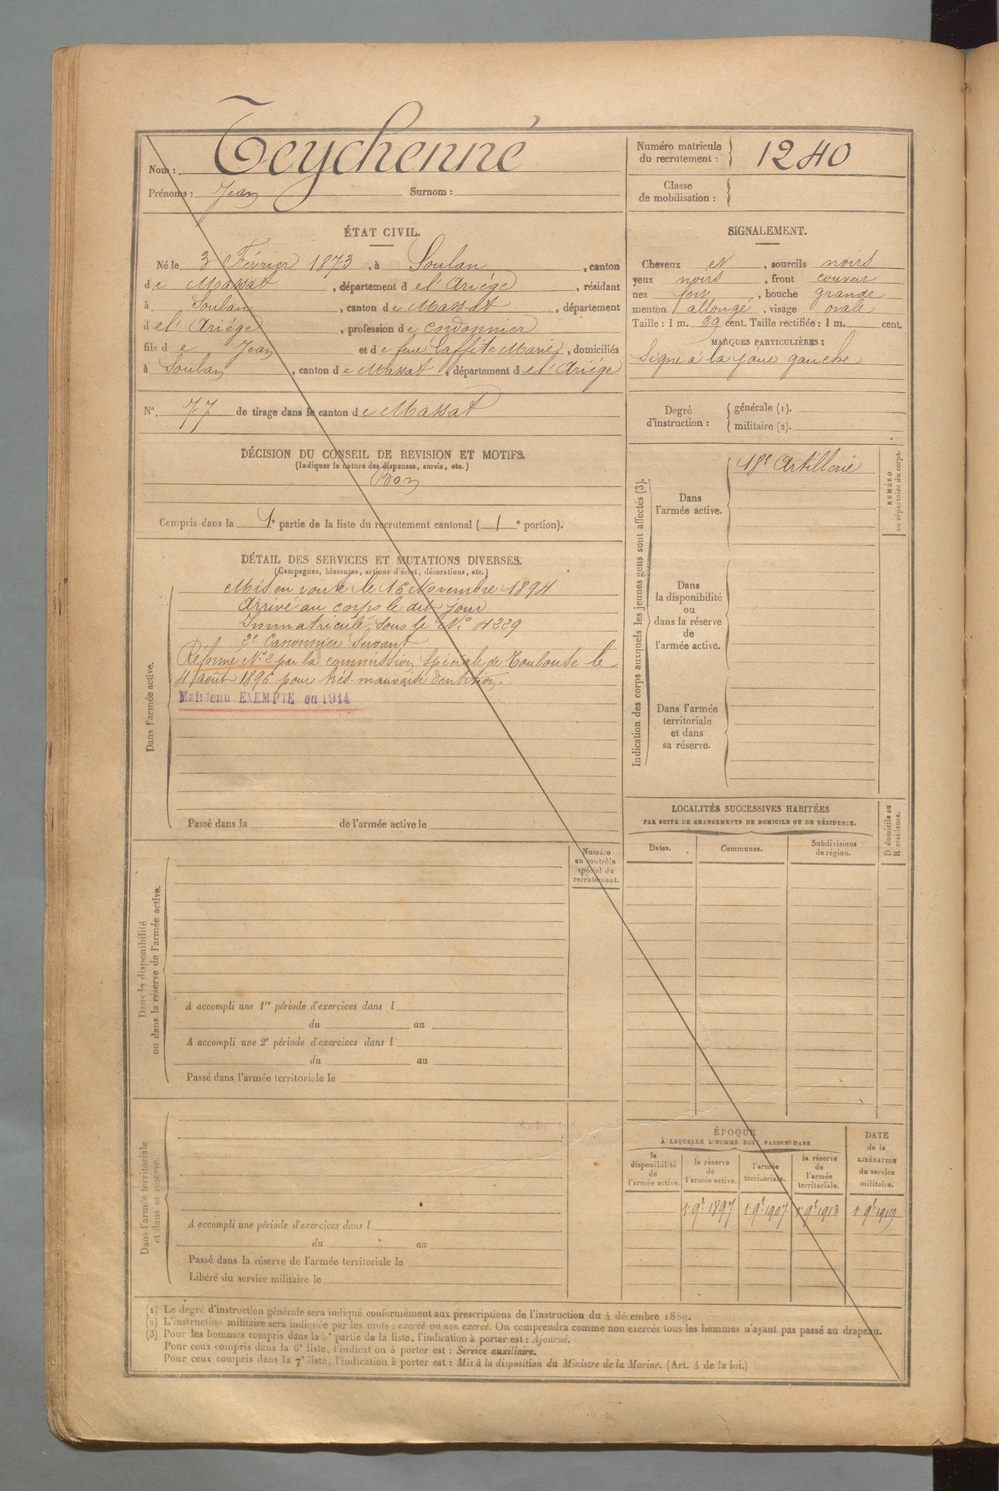 Nom : Teychenné
Prénoms : Jean Surnom :
Numéro matricule
du recrutement : 1240
Classe
de mobilisation :
ÉTAT CIVIL.
Né le 3 Février 1873, à Soulan, canton
de Massat, département de l'Ariège, résidant
à Soulan, canton de Massat, département
de l'Ariège, profession de cordonnier
fils de Jean et de feue Laffite Marie, domiciliés
à Soulan, canton de Massat, département de l'Ariége
N° 77 de tirage dans le canton de Massat
SIGNALEMENT.
Cheveux et, sourcils noirs
yeux noirs, front couvert
nez fort, bouche grande
menton allongé, visage ovale
Taille : 1 m. 69 cent. Taille rectifiée : 1 m. cent.
MARQUES PARTICULIÈRES :
Signe à la joue gauche
Degré
d'instruction :
générale (1).
militaire (2).
DÉCISION DU CONSEIL DE REVISION ET MOTIFS.
(Indiquer la nature des dispenses, sursis, etc.)
Bon
Compris dans la 1e partie de la liste du recrutement cantonal (1e portion).
DÉTAIL DES SERVICES ET MUTATIONS DIVERSES.
(Campagnes, blessures, actions d'éclat, décorations, etc.)
Dans l'armée active.
Mis en route le 16 Novembre 1894
Arrivé au corps le dit jour
Immatriculé sous le N° 4339
2e Canonnier Servant
Réformé N° 2 par la commission spéciale de Toulouse le
4 août 1895 pour très mauvaise dentition.
Maintenu EXEMPTÉ en 1914
Passé dans la de l'armée active le
Indication des corps auxquels les jeunes gens sont affectés (3).
Dans
l'armée active.
18e Artillerie
NUMÉRO
au répertoire du corps.
Dans
la disponibilité
ou
dans la réserve
de
l'armée active.
Dans l'armée
territoriale
et dans
sa réserve.
LOCALITÉS SUCCESSIVES HABITÉES
PAR SUITE DE CHANGEMENTS DE DOMICILE OU DE RÉSIDENCE.
Dates. Communes. Subdivisions
de région.
D domicile ou
R résidence.
Dans la disponibilité
ou dans la réserve de l'armée active.
Numéro
au contrôle
spécial du
recrutement.
A accompli une 1re période d'exercices dans l
du au
A accompli une 2e période d'exercices dans l
du au
Passé dans l'armée territoriale le
Dans l'armée territoriale
et dans sa réserve.
A accompli une période d'exercices dans l
du au
Passé dans la réserve de l'armée territoriale le
Libéré du service militaire le
ÉPOQUE
À LAQUELLE L'HOMME DOIT PASSER DANS
DATE
de la
LIBÉRATION
du service
militaire.
la
disponibilité
de
l'armée active.
la réserve
de
l'armée active.
l'armée
territoriale.
la réserve
de
l'armée
territoriale.
1 9e 1897 1 9e 1907 1 9e 1913 1 9e 1919
(1) Le degré d'instruction générale sera indiqué conformément aux prescriptions de l'instruction du 4 décembre 1889.
(2) L'instruction militaire sera indiquée par les mots : exercé ou non exercé. On comprendra comme non exercés tous les hommes n'ayant pas passé au drapeau.
(3) Pour les hommes compris dans la 5e partie de la liste, l'indication à porter est : Ajourné.
Pour ceux compris dans la 6e liste, l'indication à porter est : Service auxiliaire.
Pour ceux compris dans la 7e liste, l'indication à porter est : Mis à la disposition du Ministre de la Marine. (Art. 4 de la loi.)